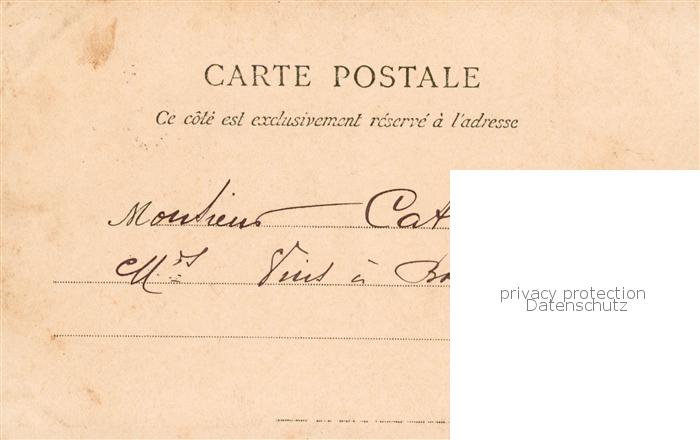 CARTE POSTALE
Ce côté est exclusivement réservé à l'adresse
Monsieur Cat
Mds Vins à Bo
privacy protection
Datenschutz